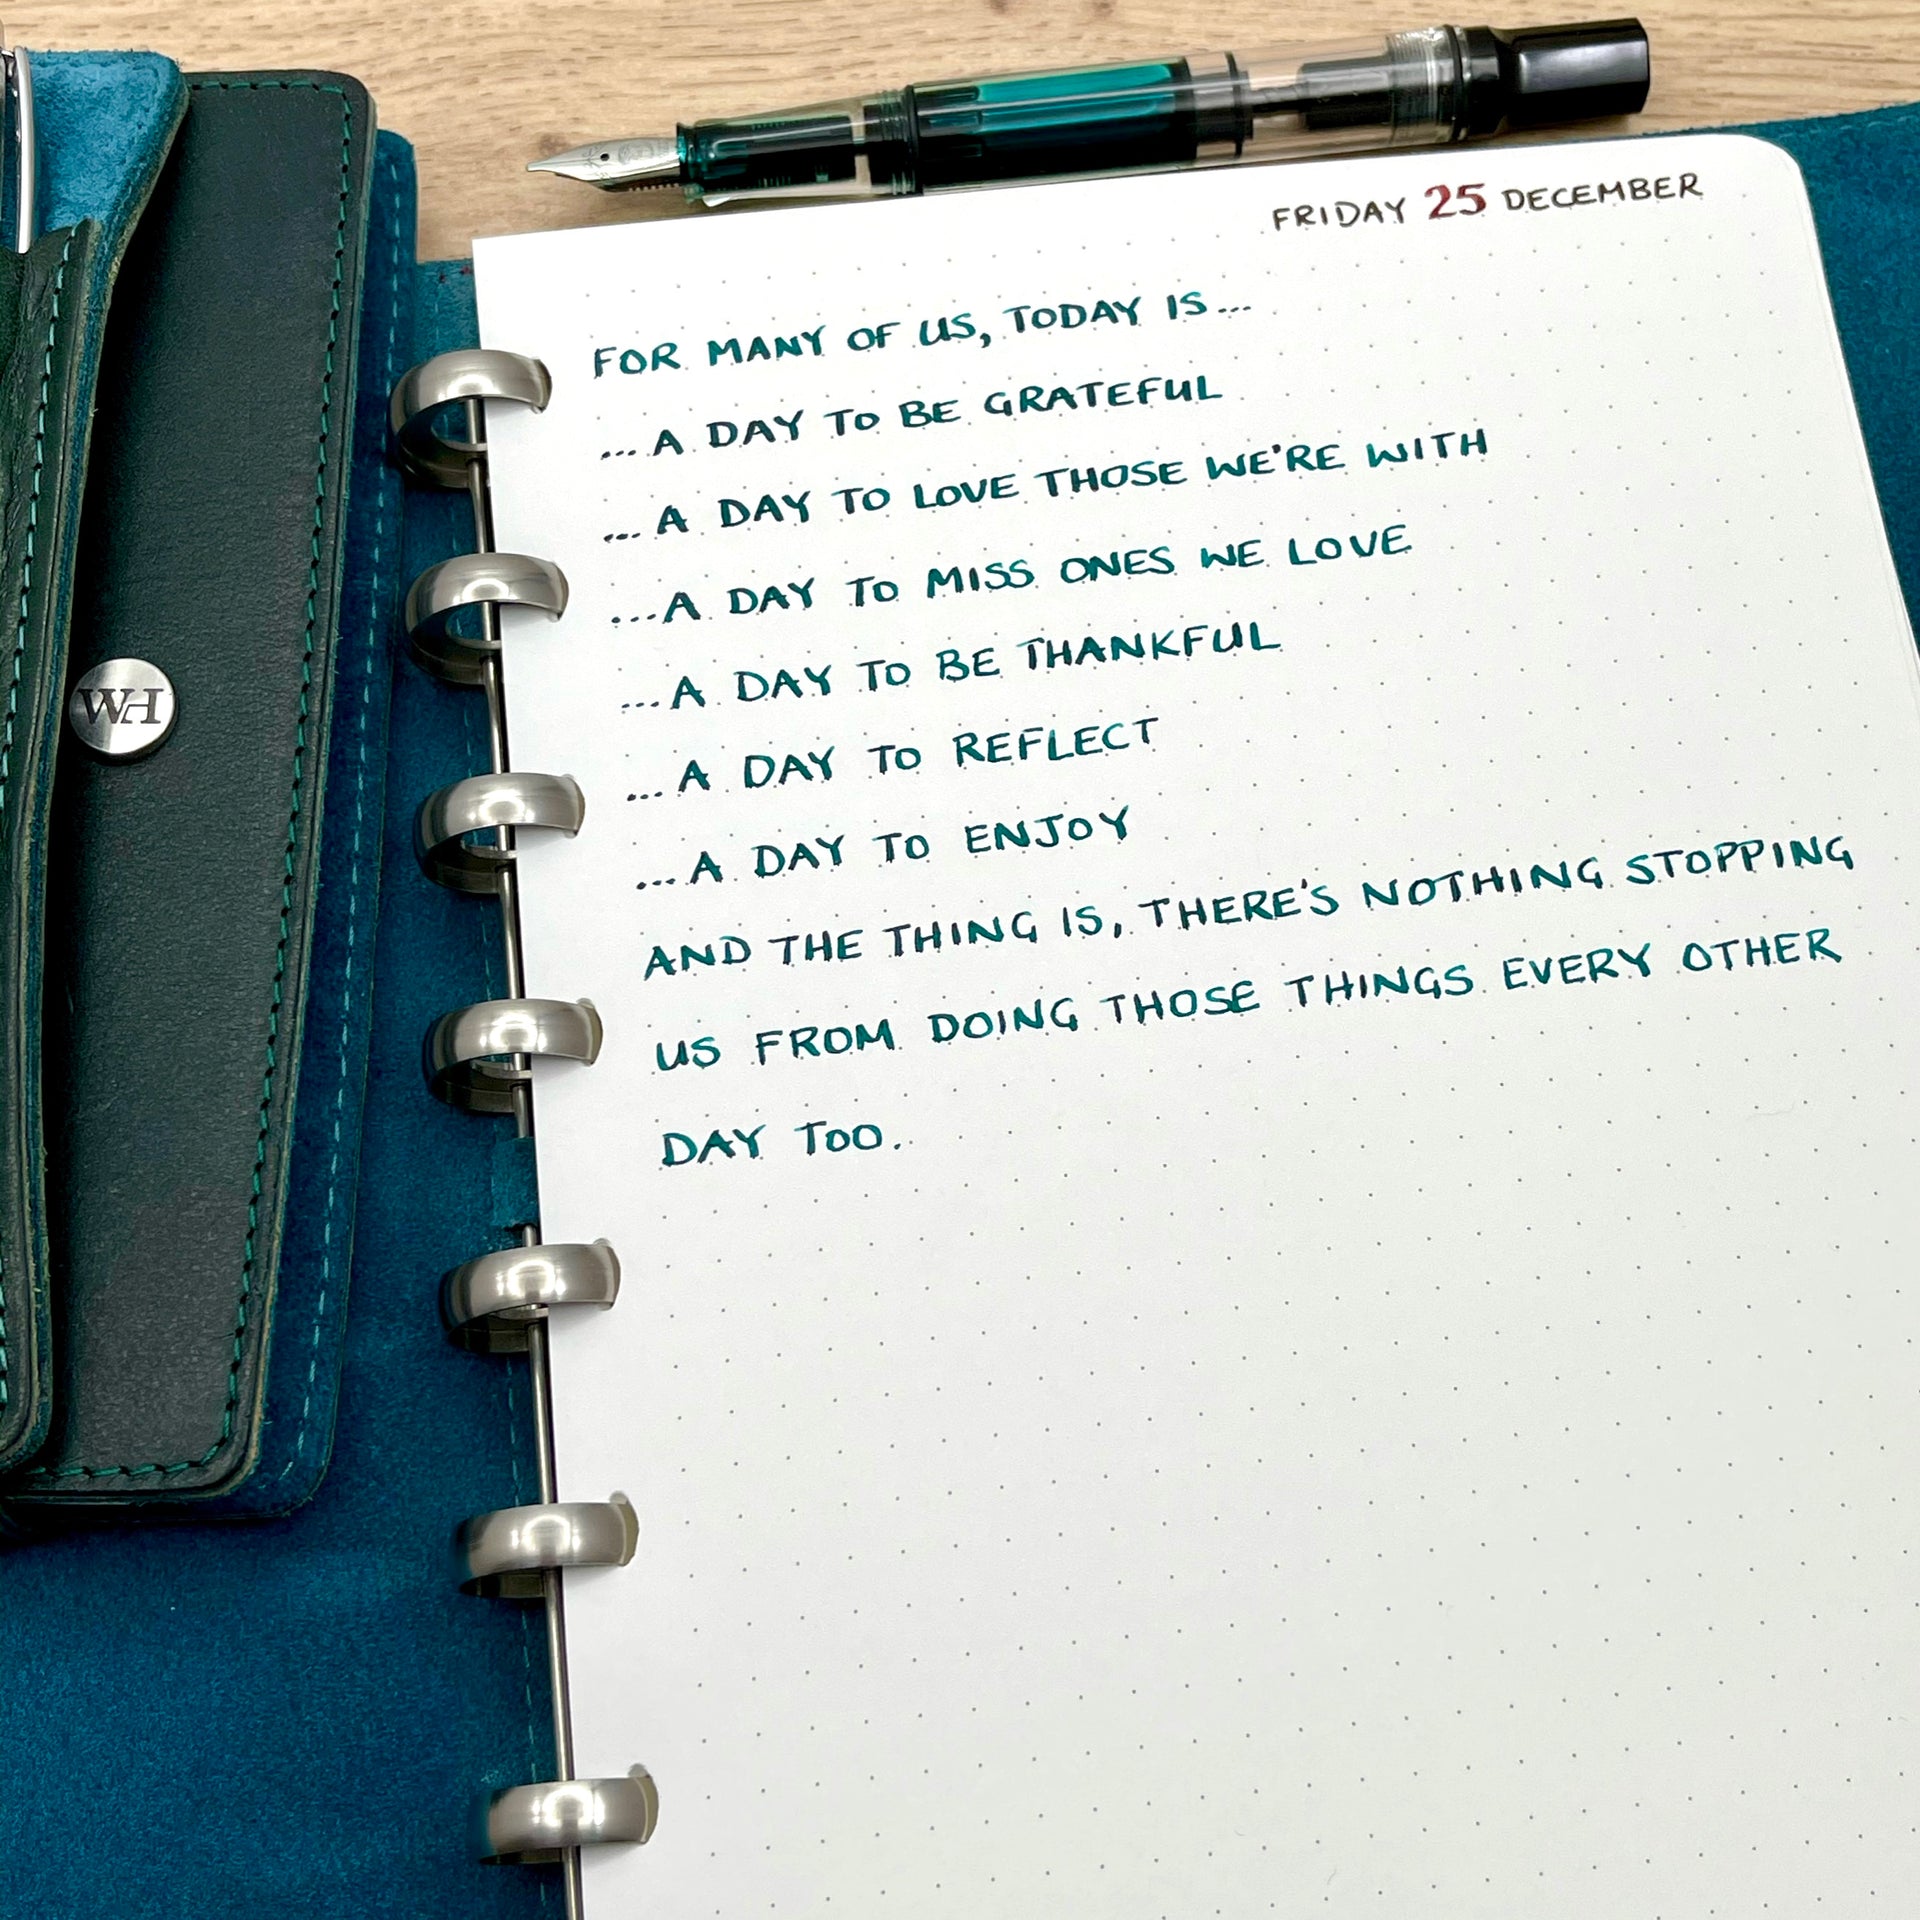 FRIDAY 25 DECEMBER
FOR MANY OF US, TODAY IS...
...A DAY TO BE GRATEFUL
...A DAY TO LOVE THOSE WE'RE WITH
...A DAY TO MISS ONES WE LOVE
...A DAY TO BE THANKFUL
...A DAY TO REFLECT
...A DAY TO ENJOY
AND THE THING IS, THERE'S NOTHING STOPPING
US FROM DOING THOSE THINGS EVERY OTHER
DAY TOO.
WH